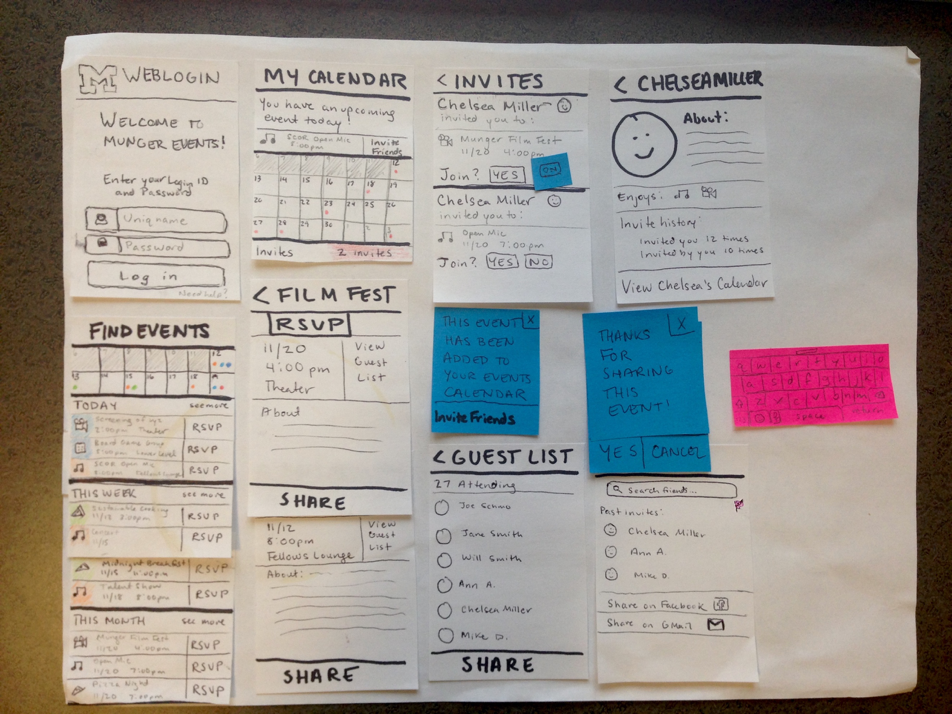 M WEBLOGIN
WELCOME TO
MUNGER EVENTS!
Enter your Login ID
and Password
Uniqname
Password
Log in
Need help?
MY CALENDAR
You have an upcoming
event today!
SEOR Open Mic
8:00pm
Invite
Friends
12
13 14 15 16 17 18 19
20 21 22 23 24 25 26
27 28 29 30
Invites 2 invites
< INVITES
Chelsea Miller
invited you to:
Munger Film Fest
11/20 4:00pm
Join? YES
Chelsea Miller
invited you to:
Open Mic
11/20 7:00pm
Join? YES NO
< CHELSEA MILLER
About:
Enjoys:
Invite history:
Invited you 12 times
Invited by you 10 times
View Chelsea's Calendar
FIND EVENTS
12
TODAY see more
Screening of xyz
Theater
RSVP
Board Game Group
Lower Level
RSVP
SEOR Open Mic
8:00pm Fellows Lounge
RSVP
THIS WEEK see more
Sustainable Cooking
11/13
RSVP
Concert
11/15
RSVP
Midnight Breakfast
11/15
RSVP
Talent Show
11/18 8:00pm
RSVP
THIS MONTH see more
Munger Film Fest
11/20 4:00pm
RSVP
Open Mic
11/20 7:00pm
RSVP
Pizza Night
11/20 7:00pm
RSVP
< FILM FEST
RSVP
11/20
4:00pm
Theater
View
Guest
List
About
SHARE
11/12
8:00pm
Fellows Lounge
View
Guest
List
About:
SHARE
THIS EVENT X
HAS BEEN
ADDED TO
YOUR EVENTS
CALENDAR
Invite Friends
THANKS X
FOR
SHARING
THIS
EVENT!
YES CANCEL
q w e r t y u i o
a s d f g h j k l
z x c v b n m
space return
< GUEST LIST
27 Attending
Joe Schmo
Jane Smith
Will Smith
Ann A.
Chelsea Miller
Mike D.
SHARE
Search friends...
Past invites:
Chelsea Miller
Ann A.
Mike D.
Share on Facebook
Share on GMail